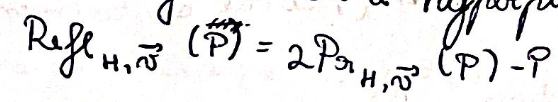 Refl_{H, \vec{v}} (P) = 2Pr_{H, \vec{v}} (P) - P